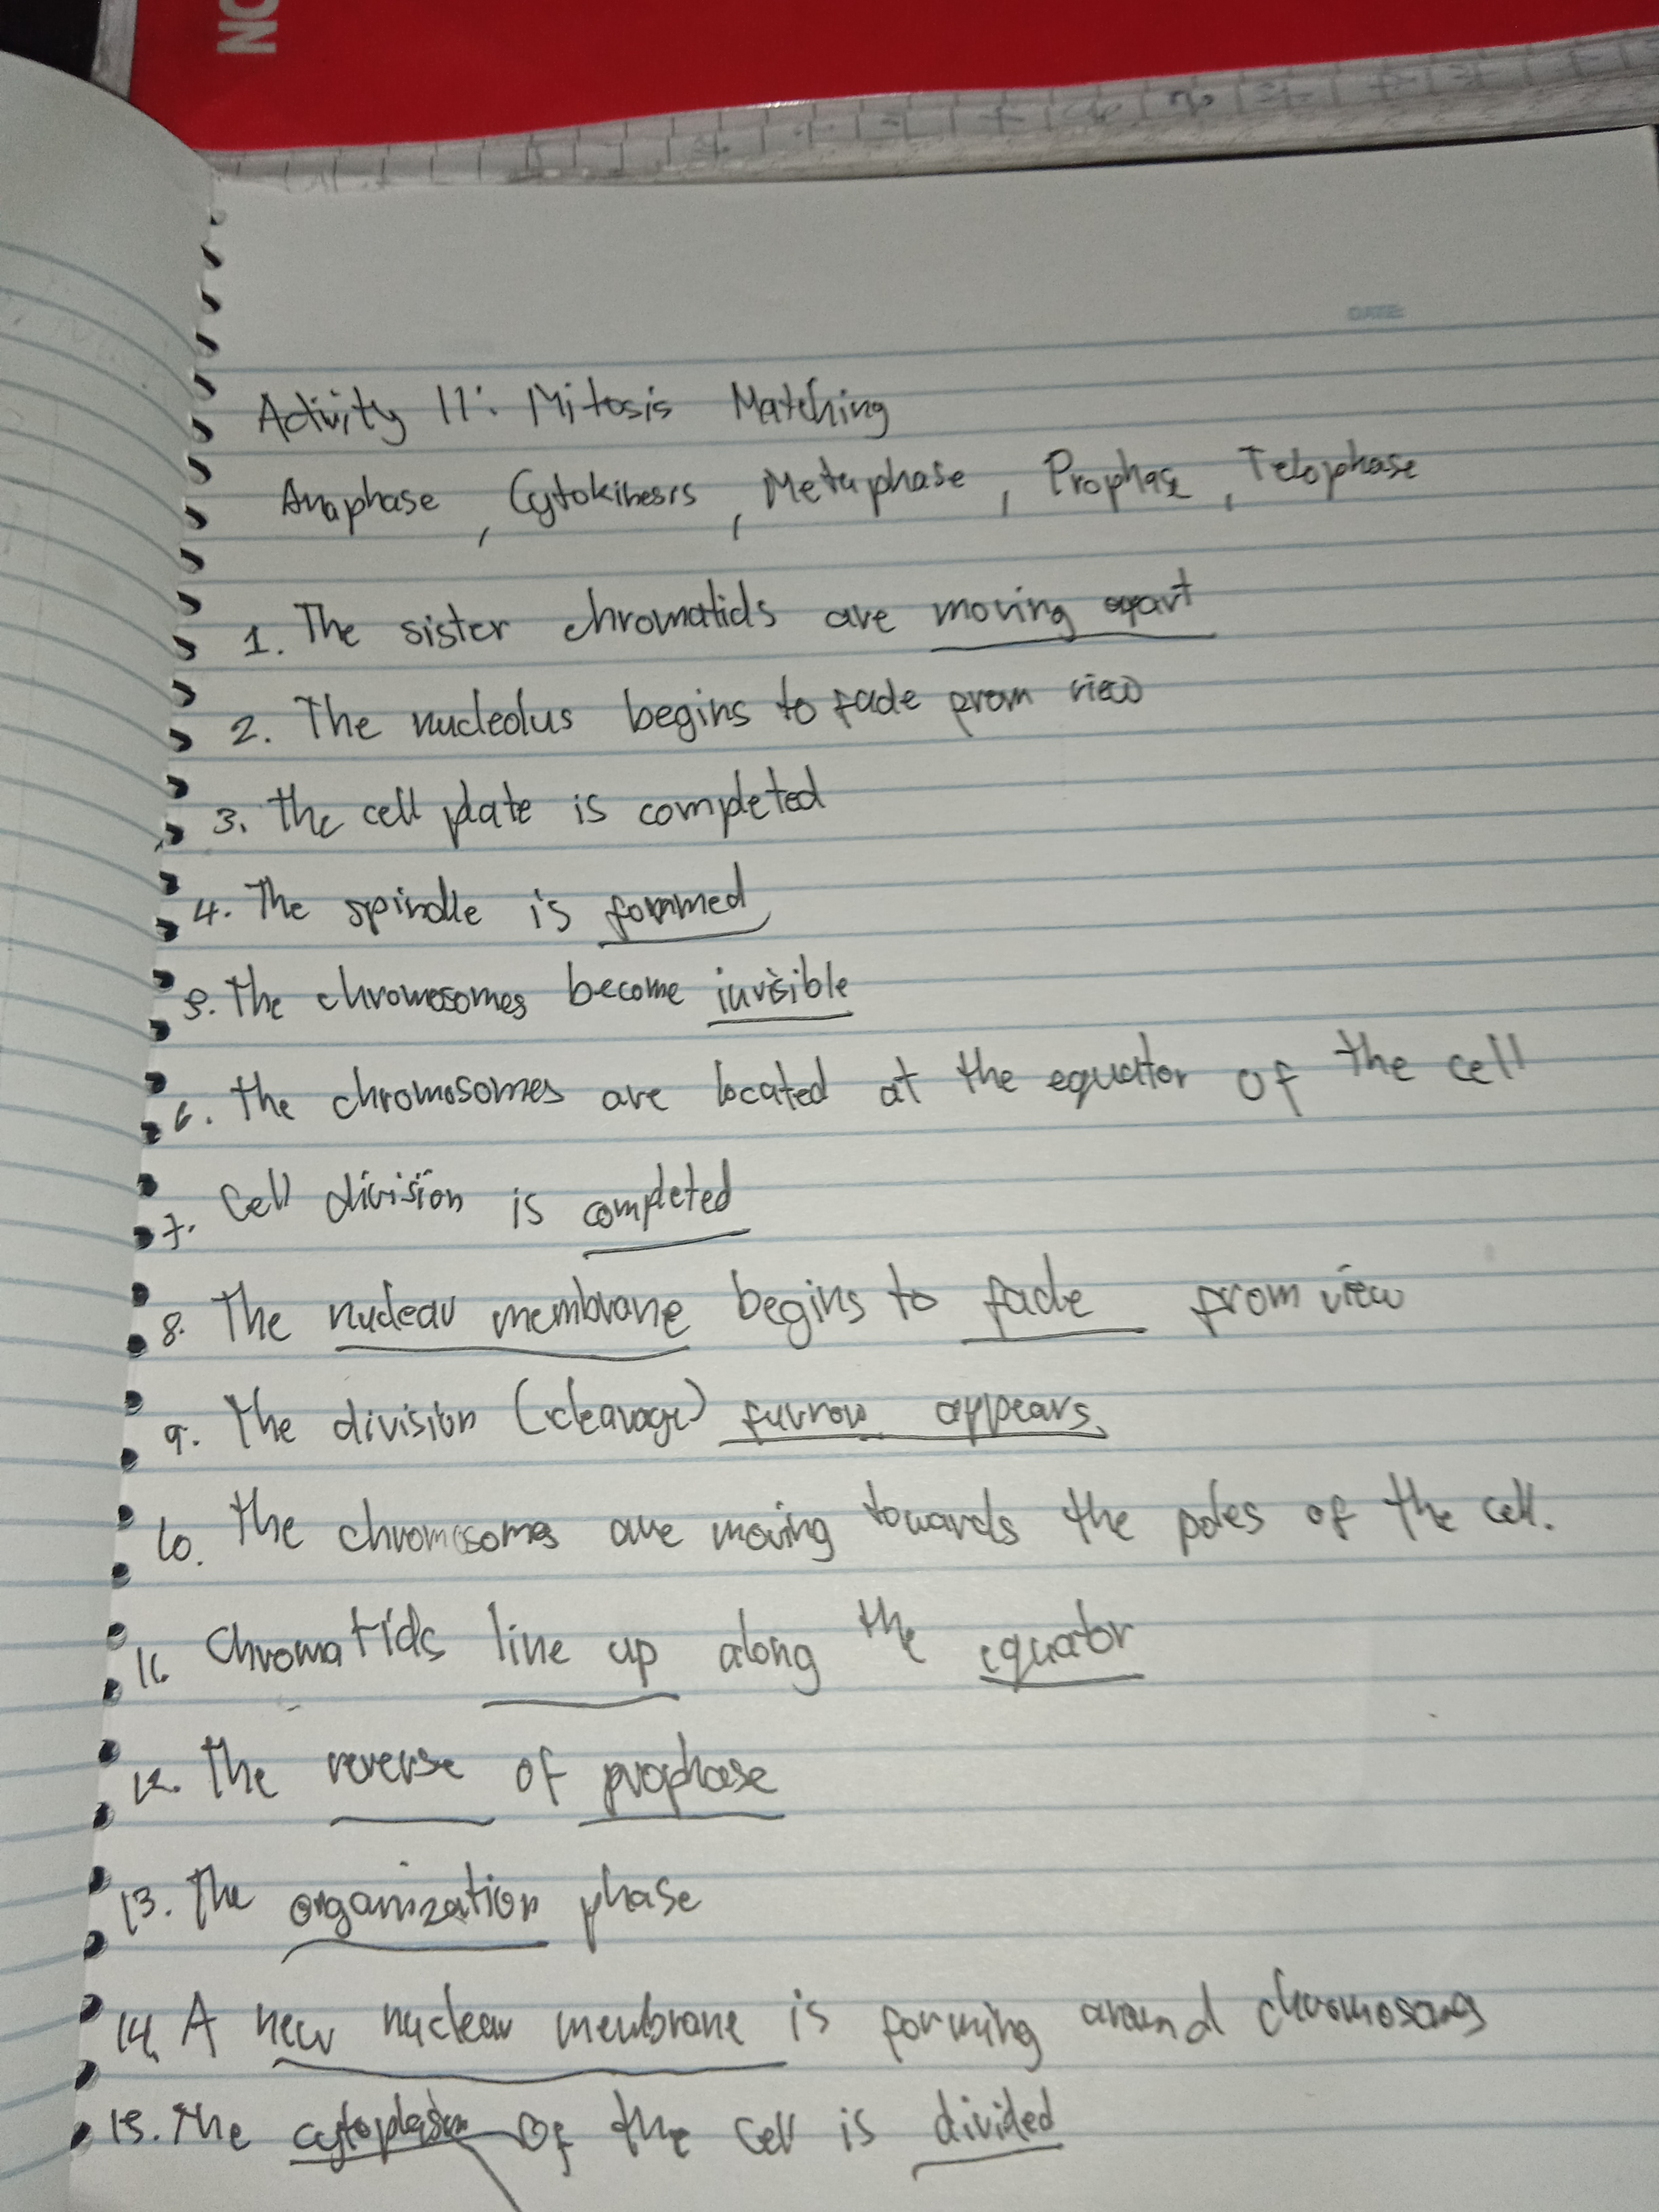 NO
DATE:
Activity 11: Mitosis Matching
Anaphase, Cytokinesis, Metaphase, Prophase, Telophase
1. The sister chromatids are moving apart
2. The nucleolus begins to fade from view
3. The cell plate is completed
4. The spindle is formmed
5. The chromosomes become invisible
6. The chromosomes are located at the equator of the cell
7. Cell division is completed
8. The nuclear membrane begins to fade from view
9. The division (cleavage) furrow appears.
10. The chromosomes are moving towards the poles of the cell.
11. Chromatids line up along the equator
12. The reverse of prophase
13. The organization phase
14. A new nuclear membrane is forming around chromosoms
15. The cytoplasm of the cell is divided